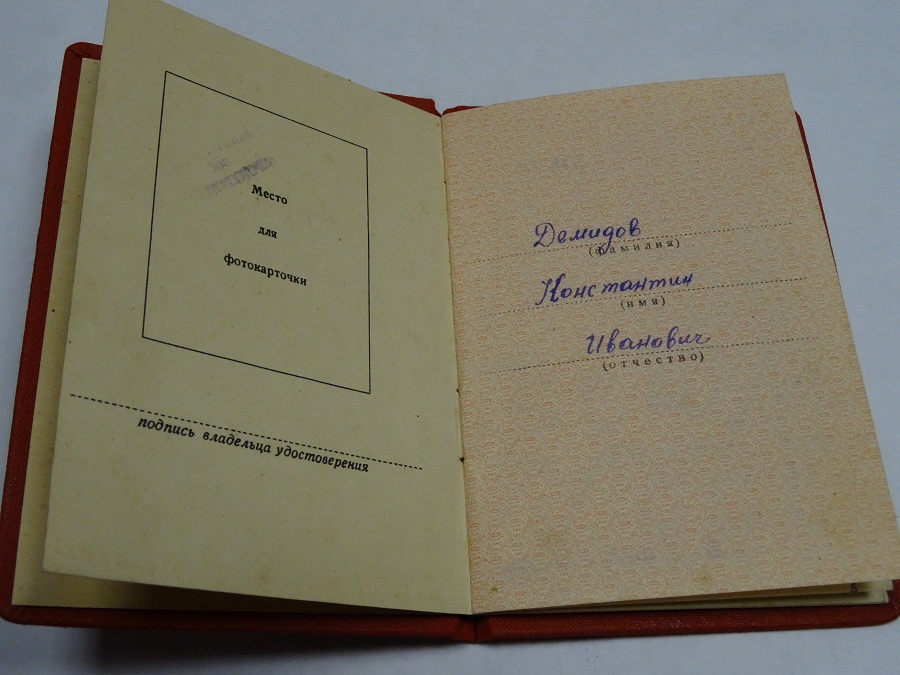 Место
для
фотокарточки
подпись владельца удостоверения
Демидов
(фамилия)
Константин
(имя)
Иванович
(отчество)